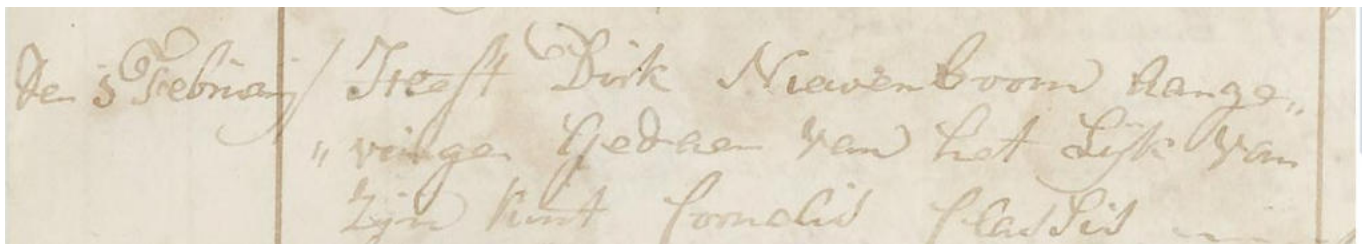 den 5 Februarij Heeft Dirk Niewenboom aange„
„vinge gedaen van het Lijk van
zijn kint Cornelis Classis